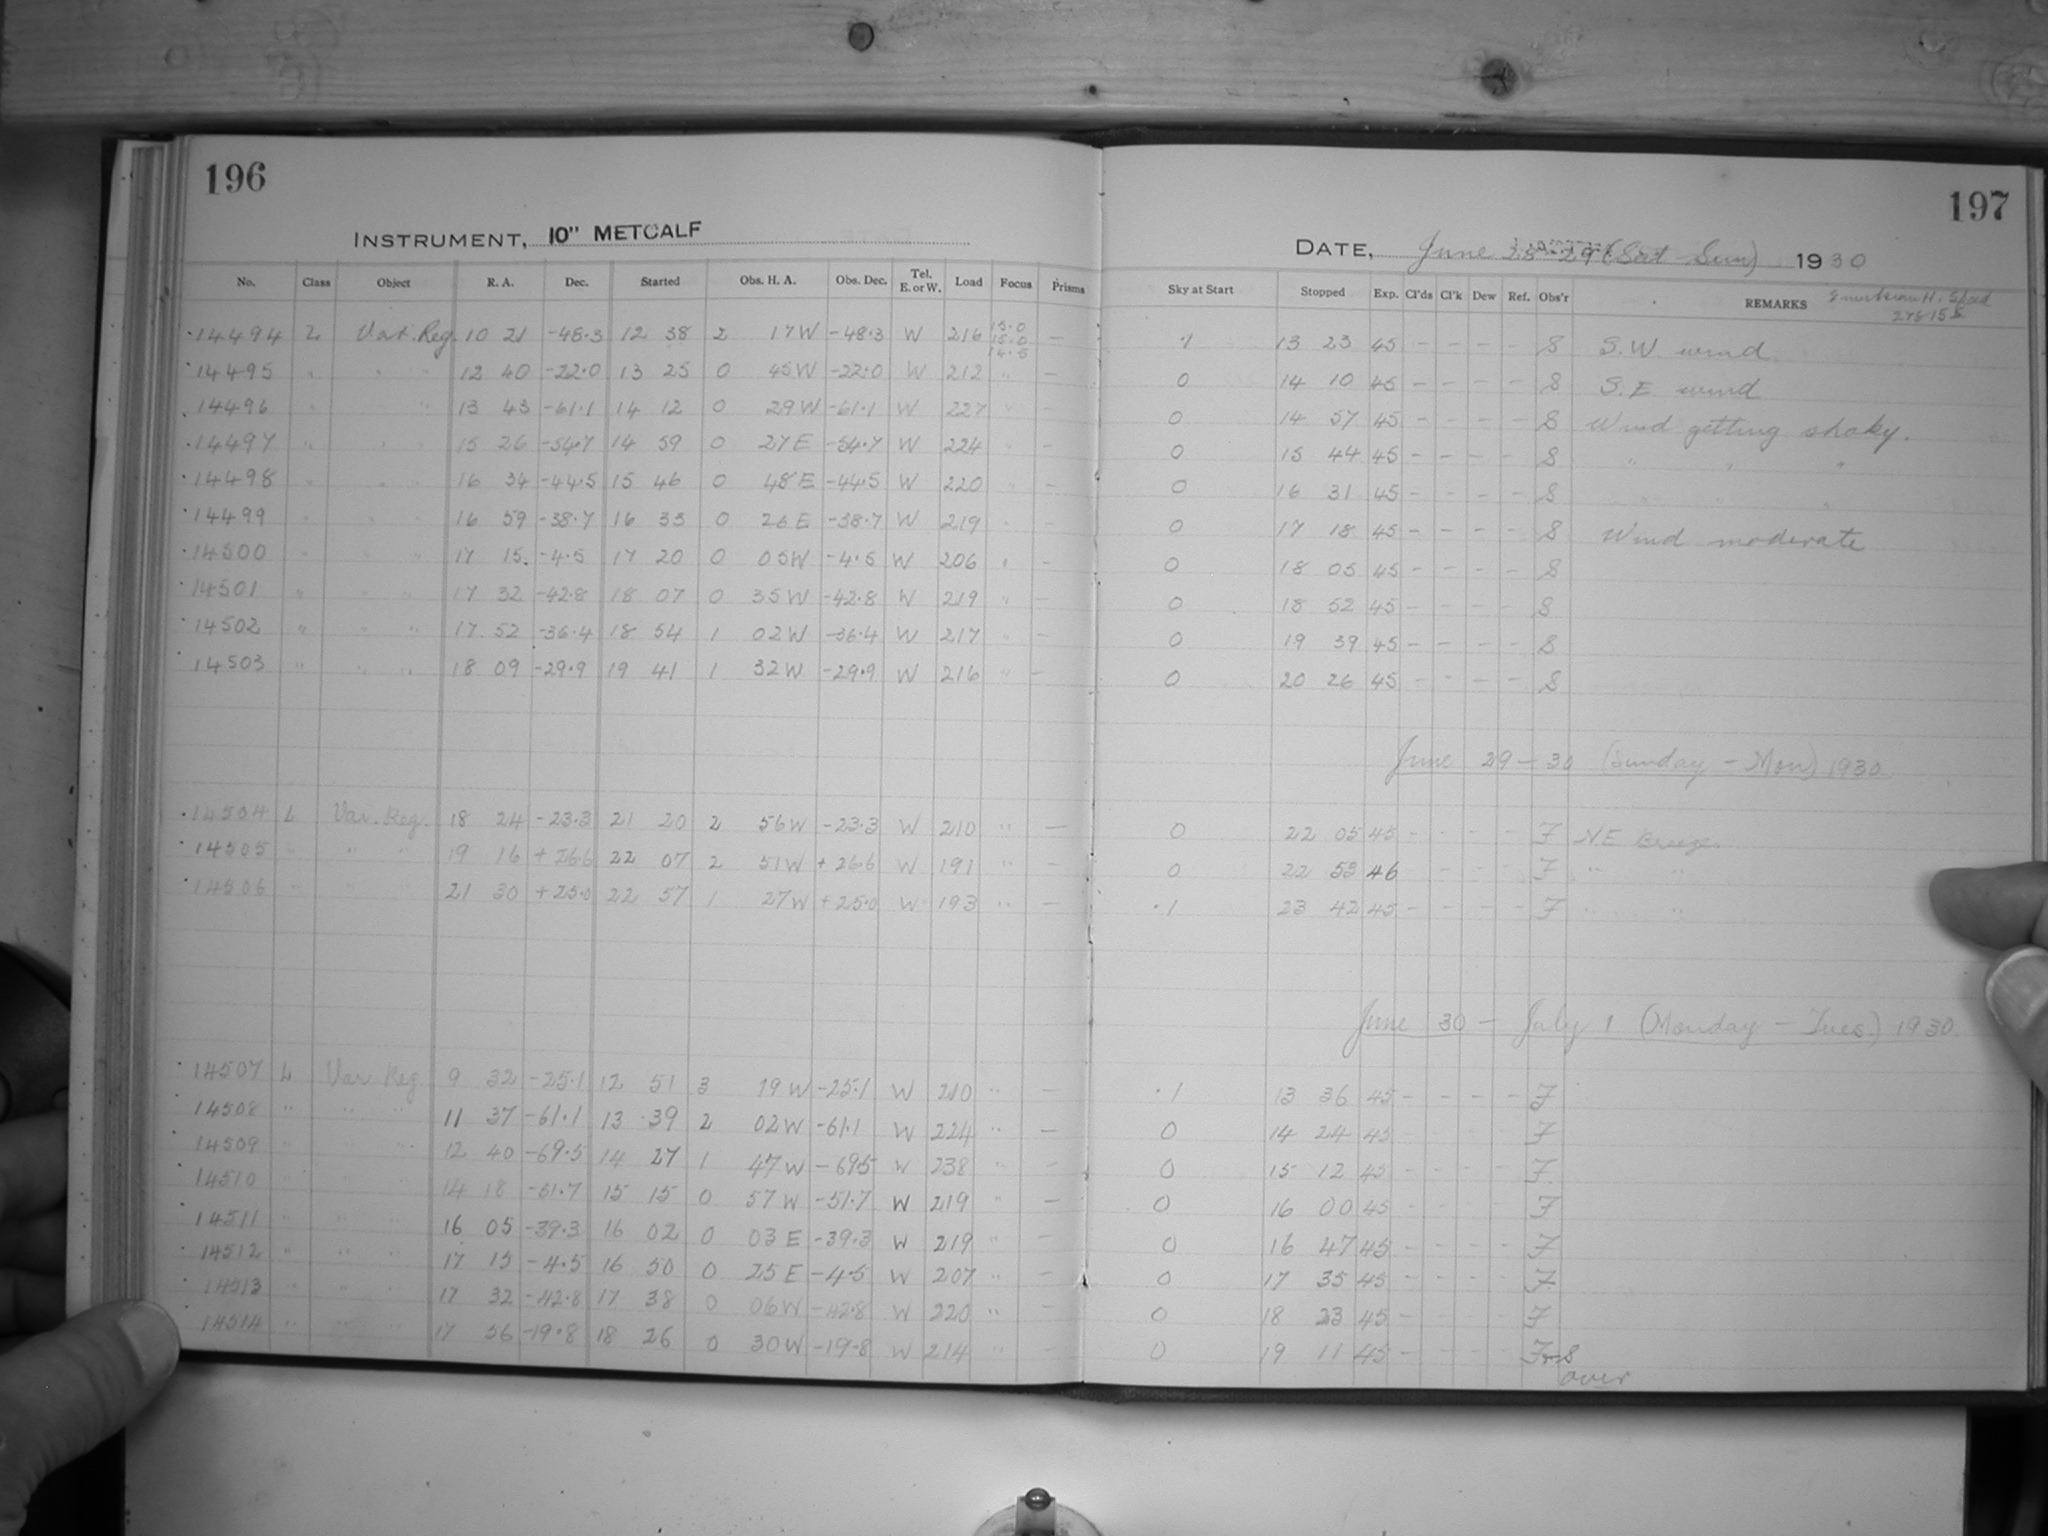 196
INSTRUMENT, 10" METCALF
No. Class Object R. A. Dec. Started Obs. H. A. Obs. Dec. Tel. E. or W. Load Focus Prisms
14494 L Var. Reg. 10 21 -48.3 12 38 2 17 W -48.3 W 216 15.0 15.0 14.5 —
14495 " " " 12 40 -22.0 13 25 0 45 W -22.0 W 212 " —
14496 " " " 13 43 -61.1 14 12 0 29 W -61.1 W 227 " —
14497 " " " 15 26 -54.7 14 59 0 27 E -54.7 W 224 " —
14498 " " " 16 34 -44.5 15 46 0 48 E -44.5 W 220 " —
14499 " " " 16 59 -38.7 16 33 0 26 E -38.7 W 219 " —
14500 " " " 17 15 -4.5 17 20 0 05 W -4.5 W 206 " —
14501 " " " 17 32 -42.8 18 07 0 35 W -42.8 W 219 " —
14502 " " " 17 52 -36.4 18 54 1 02 W -36.4 W 217 " —
14503 " " " 18 09 -29.9 19 41 1 32 W -29.9 W 216 " —
14504 L Var. Reg. 18 24 -23.3 21 20 2 56 W -23.3 W 210 " —
14505 " " " 19 16 +26.6 22 07 2 51 W +26.6 W 191 " —
14506 " " " 21 30 +25.0 22 57 1 27 W +25.0 W 193 " —
14507 L Var Reg 9 32 -25.1 12 51 3 19 W -25.1 W 210 " —
14508 " " " 11 37 -61.1 13 39 2 02 W -61.1 W 224 " —
14509 " " " 12 40 -69.5 14 27 1 47 W -69.5 W 238 " —
14510 " " " 14 18 -51.7 15 15 0 57 W -51.7 W 219 " —
14511 " " " 16 05 -39.3 16 02 0 03 E -39.3 W 219 " —
14512 " " " 17 15 -4.5 16 50 0 25 E -4.5 W 207 " —
14513 " " " 17 32 -42.8 17 38 0 06 W -42.8 W 220 " —
14514 " " " 17 56 -19.8 18 26 0 30 W -19.8 W 214 " —
197
DATE, June 28-29 (Sat - Sun) 1930
Sky at Start Stopped Exp. Cl'ds Cl'k Dew Ref. Obs'r REMARKS
.1 13 23 45 - - - - S S.W wind
0 14 10 45 - - - - S S.E wind
0 14 57 45 - - - - S Wind getting shaky.
0 15 44 45 - - - - S " " "
0 16 31 45 - - - - S " " "
0 17 18 45 - - - - S Wind moderate
0 18 05 45 - - - - S
0 18 52 45 - - - - S
0 19 39 45 - - - - S
0 20 26 45 - - - - S
June 29 - 30 (Sunday - Mon) 1930
0 22 05 45 - - - - F N.E Breeze.
0 22 53 46 - - - F " "
.1 23 42 45 - - - - F " "
June 30 - July 1 (Monday - Tues.) 1930.
.1 13 36 45 - - - - F
0 14 24 45 - - - - F
0 15 12 45 - - - - F
0 16 00 45 - - - - F
0 16 47 45 - - - - F
0 17 35 45 - - - - F
0 18 23 45 - - - - F
0 19 11 45 - - - - F
over